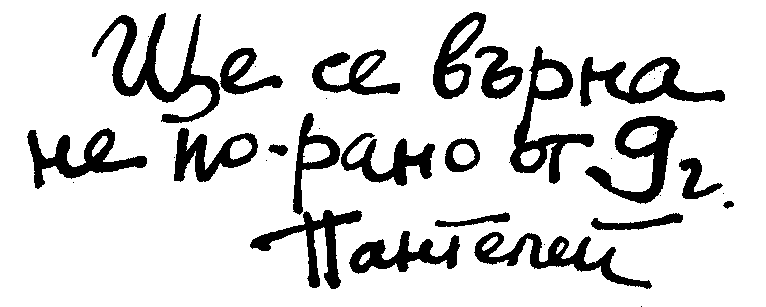 Ще се върна
не по-рано от 9г.
Пантелей